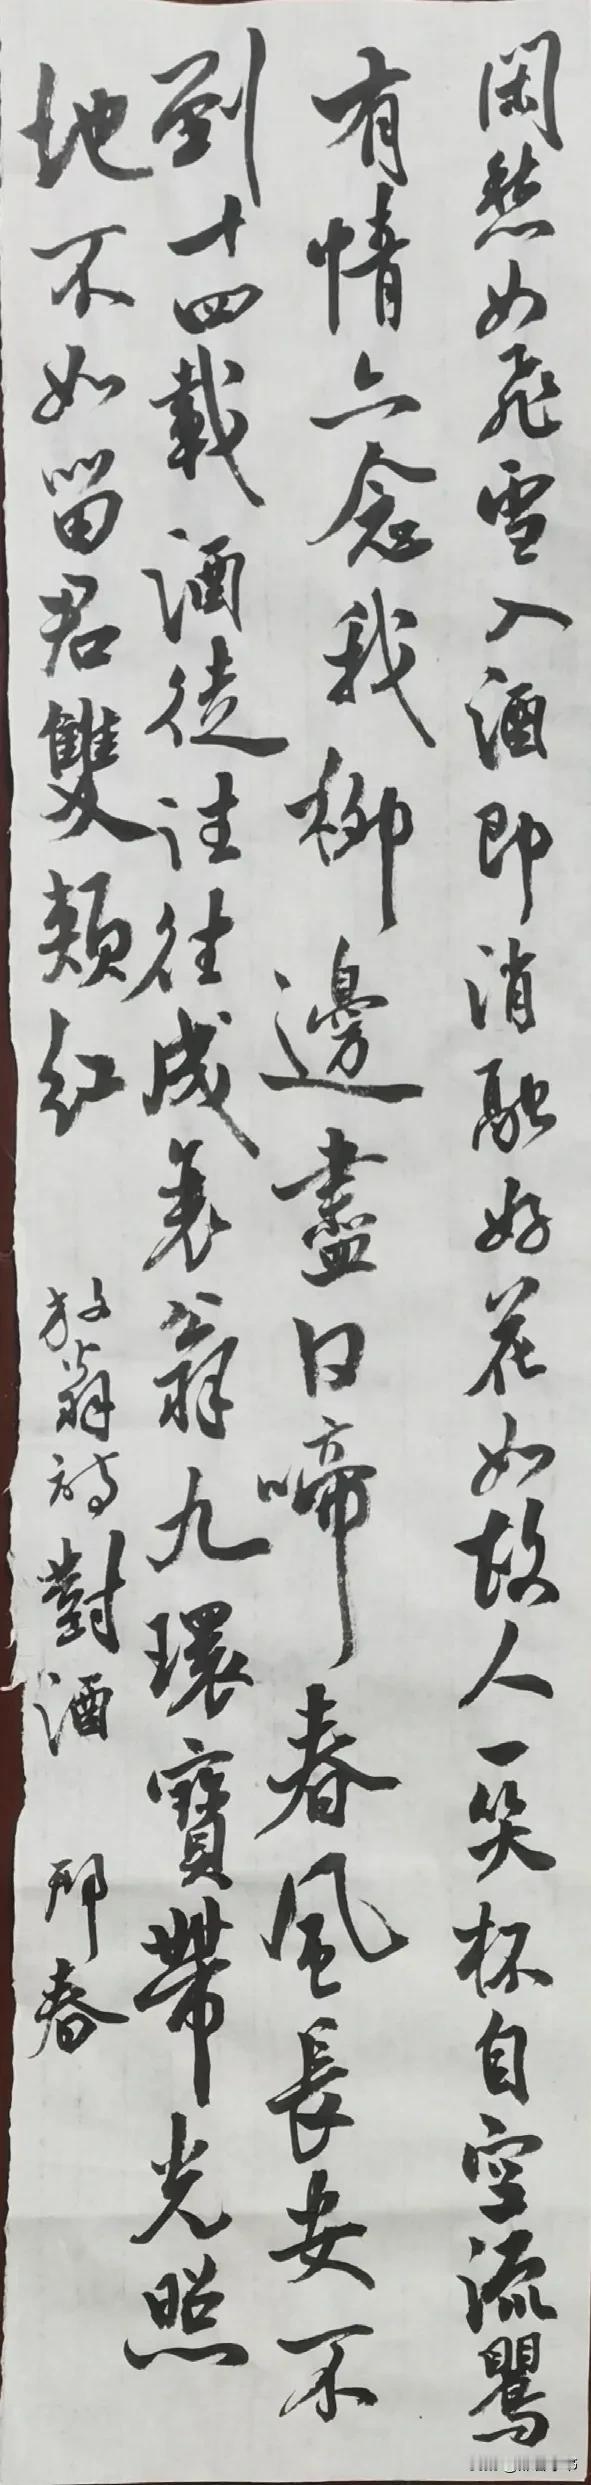 閑愁如飛雪入酒即消融好花如故人一笑杯自空流鶯
有情亦念我柳邊盡日啼春風長安不
到十四載酒徒往往成衰翁九環寶帶光照
地不如留君雙頰紅
放翁詩對酒 邢春